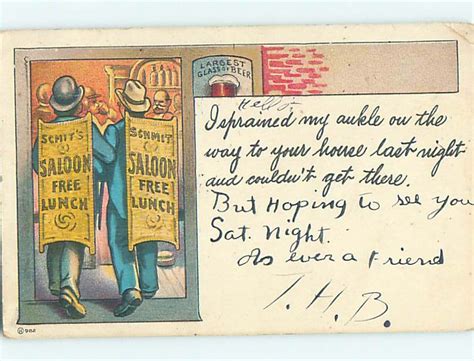 LARGEST
GLASS OF BEER
SCHMIT'S
SALOON
FREE
LUNCH
SCHMIT
SALOON
FREE
LUNCH
Hello
I sprained my ankle on the
way to your house last night
and couldn't get there.
But Hoping to see you
Sat. Night.
As ever a Friend
T. H. B.